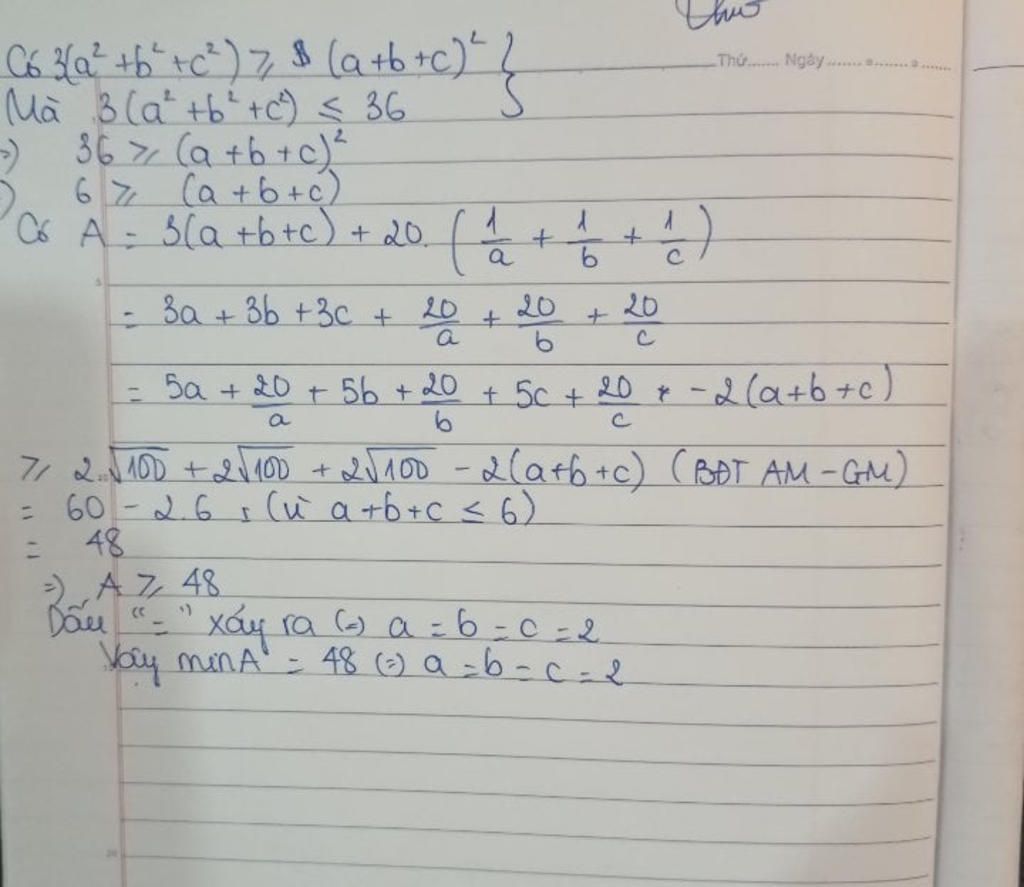 Có 3(a² + b² + c²) ⩾ (a+b+c)² }
Thứ....... Ngày
Mà 3(a² + b² + c²) ≤ 36
=) 36 ⩾ (a + b + c)²
=) 6 ⩾ (a + b + c)
Có A = 3(a + b + c) + 20. (1/a + 1/b + 1/c)
= 3a + 3b + 3c + 20/a + 20/b + 20/c
= 5a + 20/a + 5b + 20/b + 5c + 20/c - 2(a+b+c)
⩾ 2.√100 + 2√100 + 2√100 - 2(a+b+c) (BĐT AM - GM)
= 60 - 2.6 ; (vì a+b+c ≤ 6)
= 48
=) A ⩾ 48
Dấu "=" xảy ra (=) a = b = c = 2
Vậy minA = 48 (=) a = b = c = 2